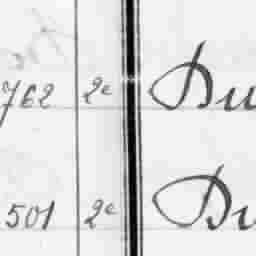 762 2e Du
501 2e Du